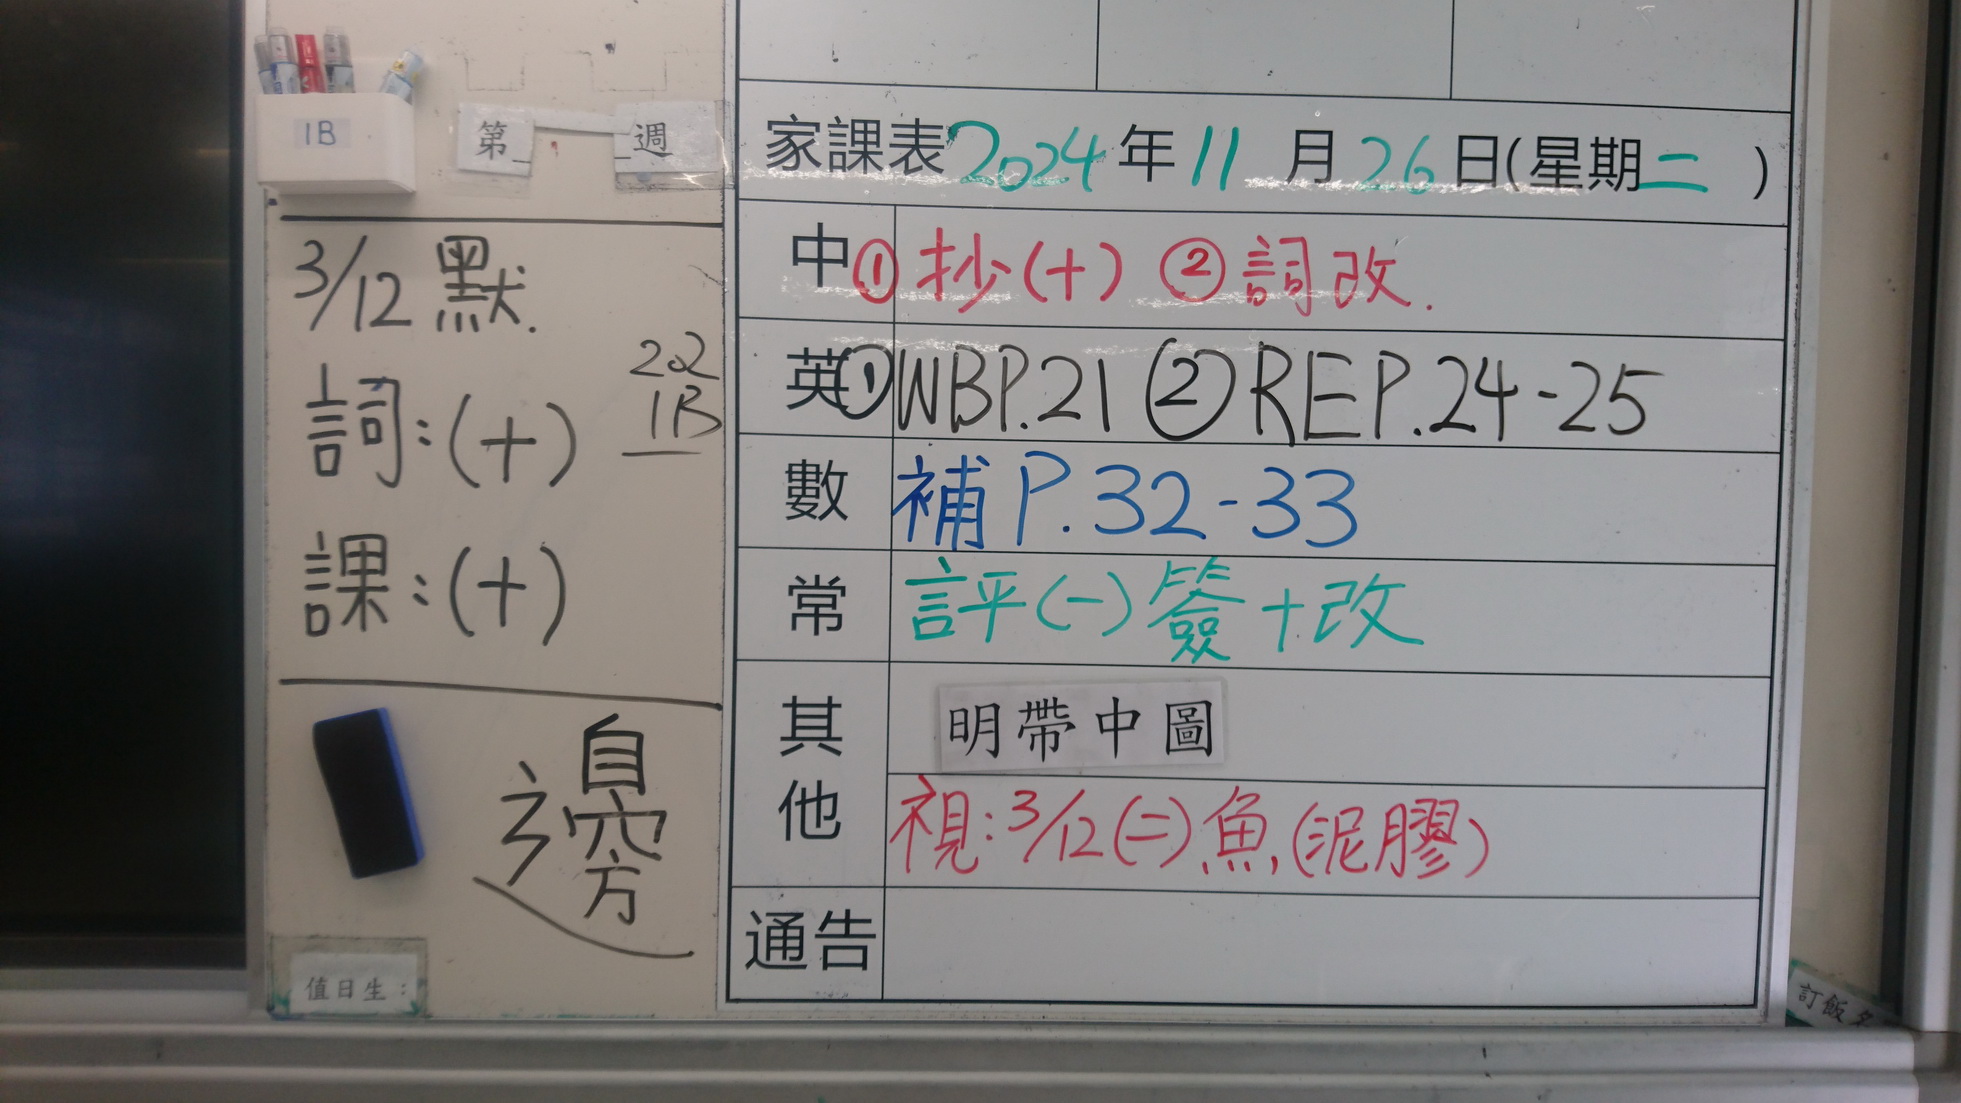 1B
第_ _週
3/12 默.
詞:(十)
202
1B
課:(十)
邊
值日生:
家課表2024年11月26日(星期二)
中 ①抄(十) ②詞改.
英 ①WBP.21 ②REP.24-25
數 補P.32-33
常 評(一)簽+改
其他 明帶中圖
視:3/12(二)魚,(泥膠)
通告
訂飯名